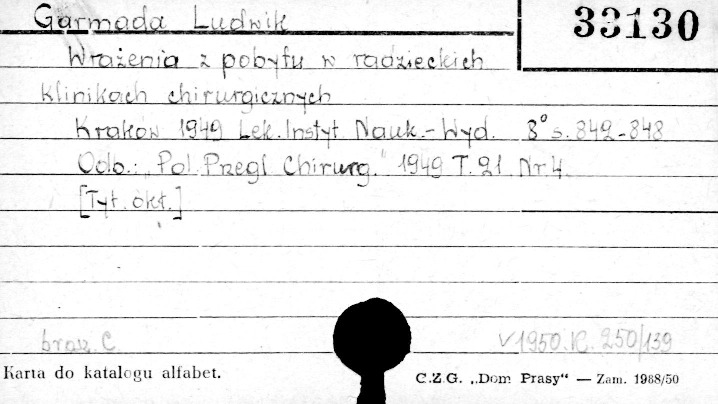 Garmada Ludwik
33130
Wrażenia z pobytu w radzieckich
klinikach chirurgicznych
Kraków 1949 Lek. Instyt. Nauk.-Wyd. 8° s. 842-848
Odb.: "Pol. Przegl. Chirurg." 1949 T. 21 Nr 4.
[Tyt. okł.]
brak C.
V 1950. K. 250/139
Karta do katalogu alfabet.
C.Z.G. „Dom Prasy" — Zam. 1968/50